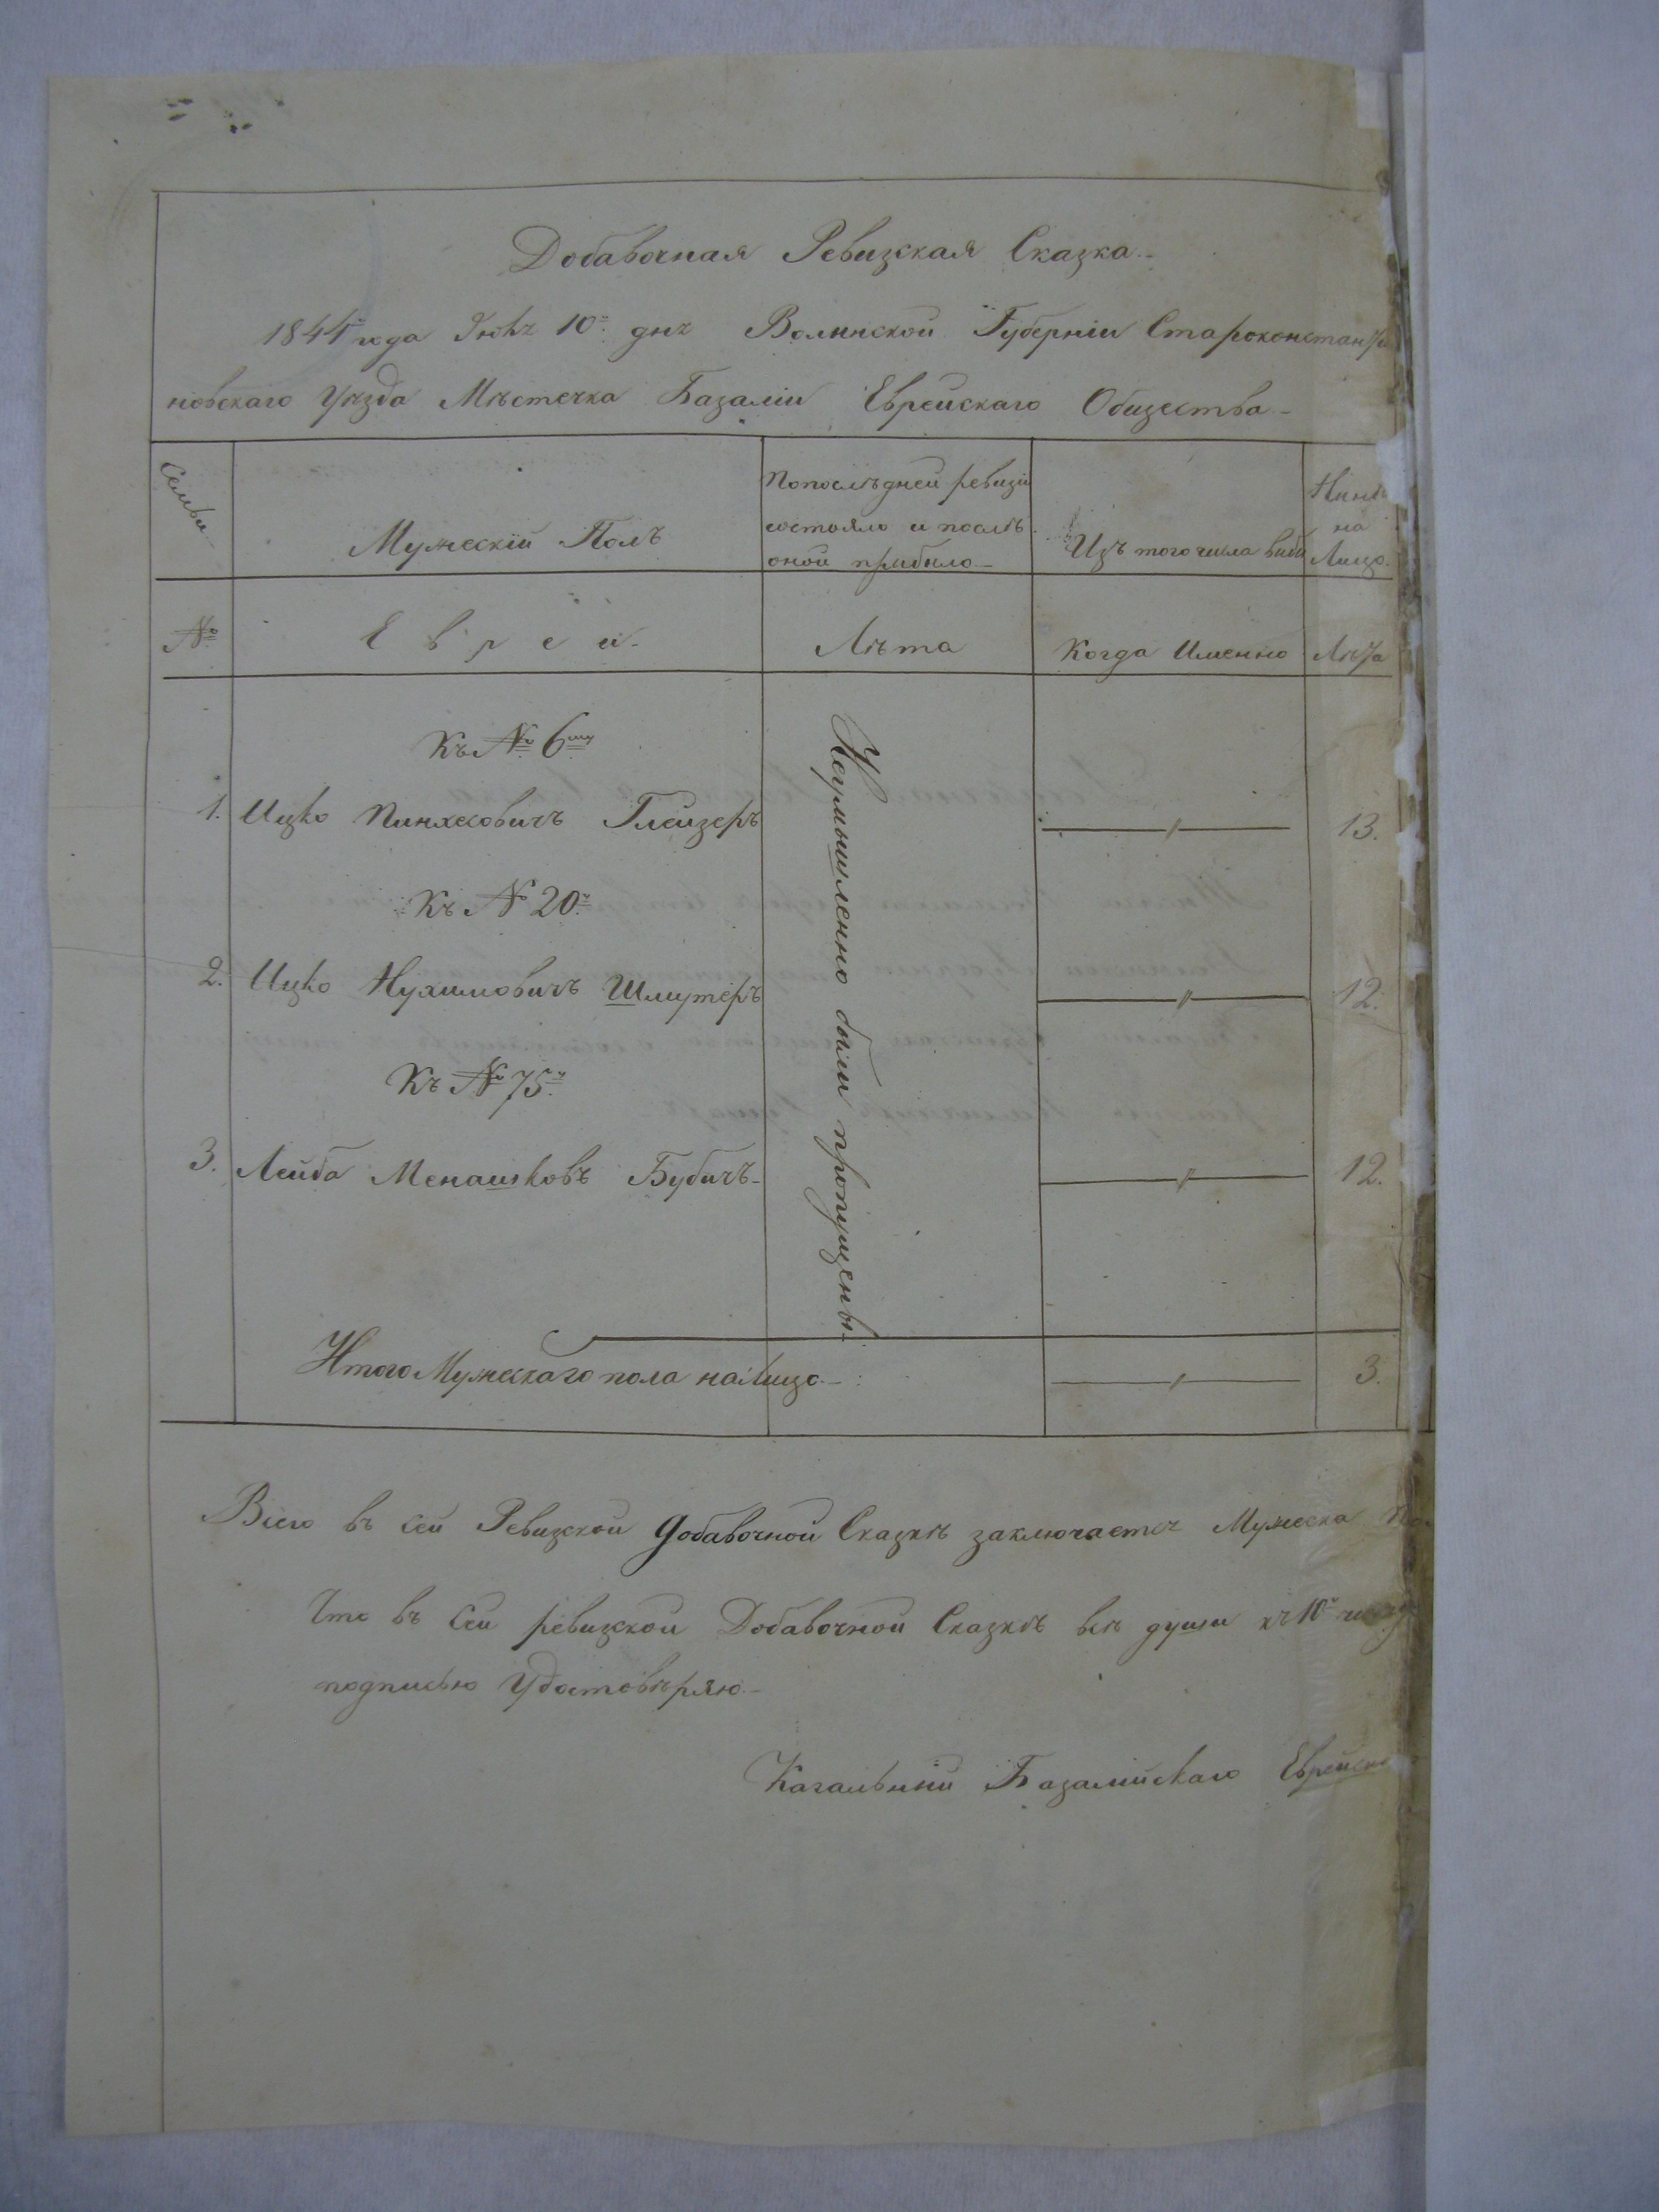 Добавочная Ревизская Сказка.
1841 года Іюня 10го дня Волынской Губерніи Староконстанти
новскаго Уѣзда Мѣстечка Базаліи Еврейскаго Общества
Семьи
Мужескій Полъ
По послѣдней ревизіи
состояло и послѣ
оной прибыло
Изъ того числа выбы
Нынѣ
на
Лицо
№
Евреи
Лѣта
Когда Именно
Лѣта
Къ № 6му
1. Ицко Пинхесовичъ Глейзеръ 13.
Къ № 20у
2. Ицко Нухимовичъ Шмутеръ 12.
Къ № 75у
3. Лейба Менашковъ Бубичъ 12.
Неумышленно были пропущены
Итого Мужескаго пола на Лицо 3.
Всего въ сей Ревизской Добавочной Сказкѣ заключается Мужеска по
Что въ сей ревизской Добавочной Сказкѣ всѣ души къ 10у
подписью удостовѣряю
Кагальный Базалийскаго Еврейска